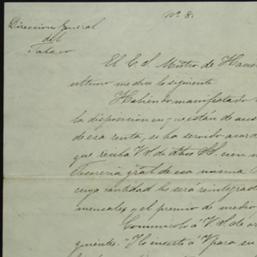 Nº 8.
Direccion General
del
Tabaco
El E. S. Mntro de Hacie
ultimo me dice lo siguiente
Habiendo manifestado
la disposicion en q. están de
de esa renta, se ha servido acor
que reciba V. S. de dhos
Tesoreria gral de esa misma
cuya cantidad le será reintegrada
mensuales y el premio de medio
Comunicolo á V. S. de
guientes. Yo inserto á V para su